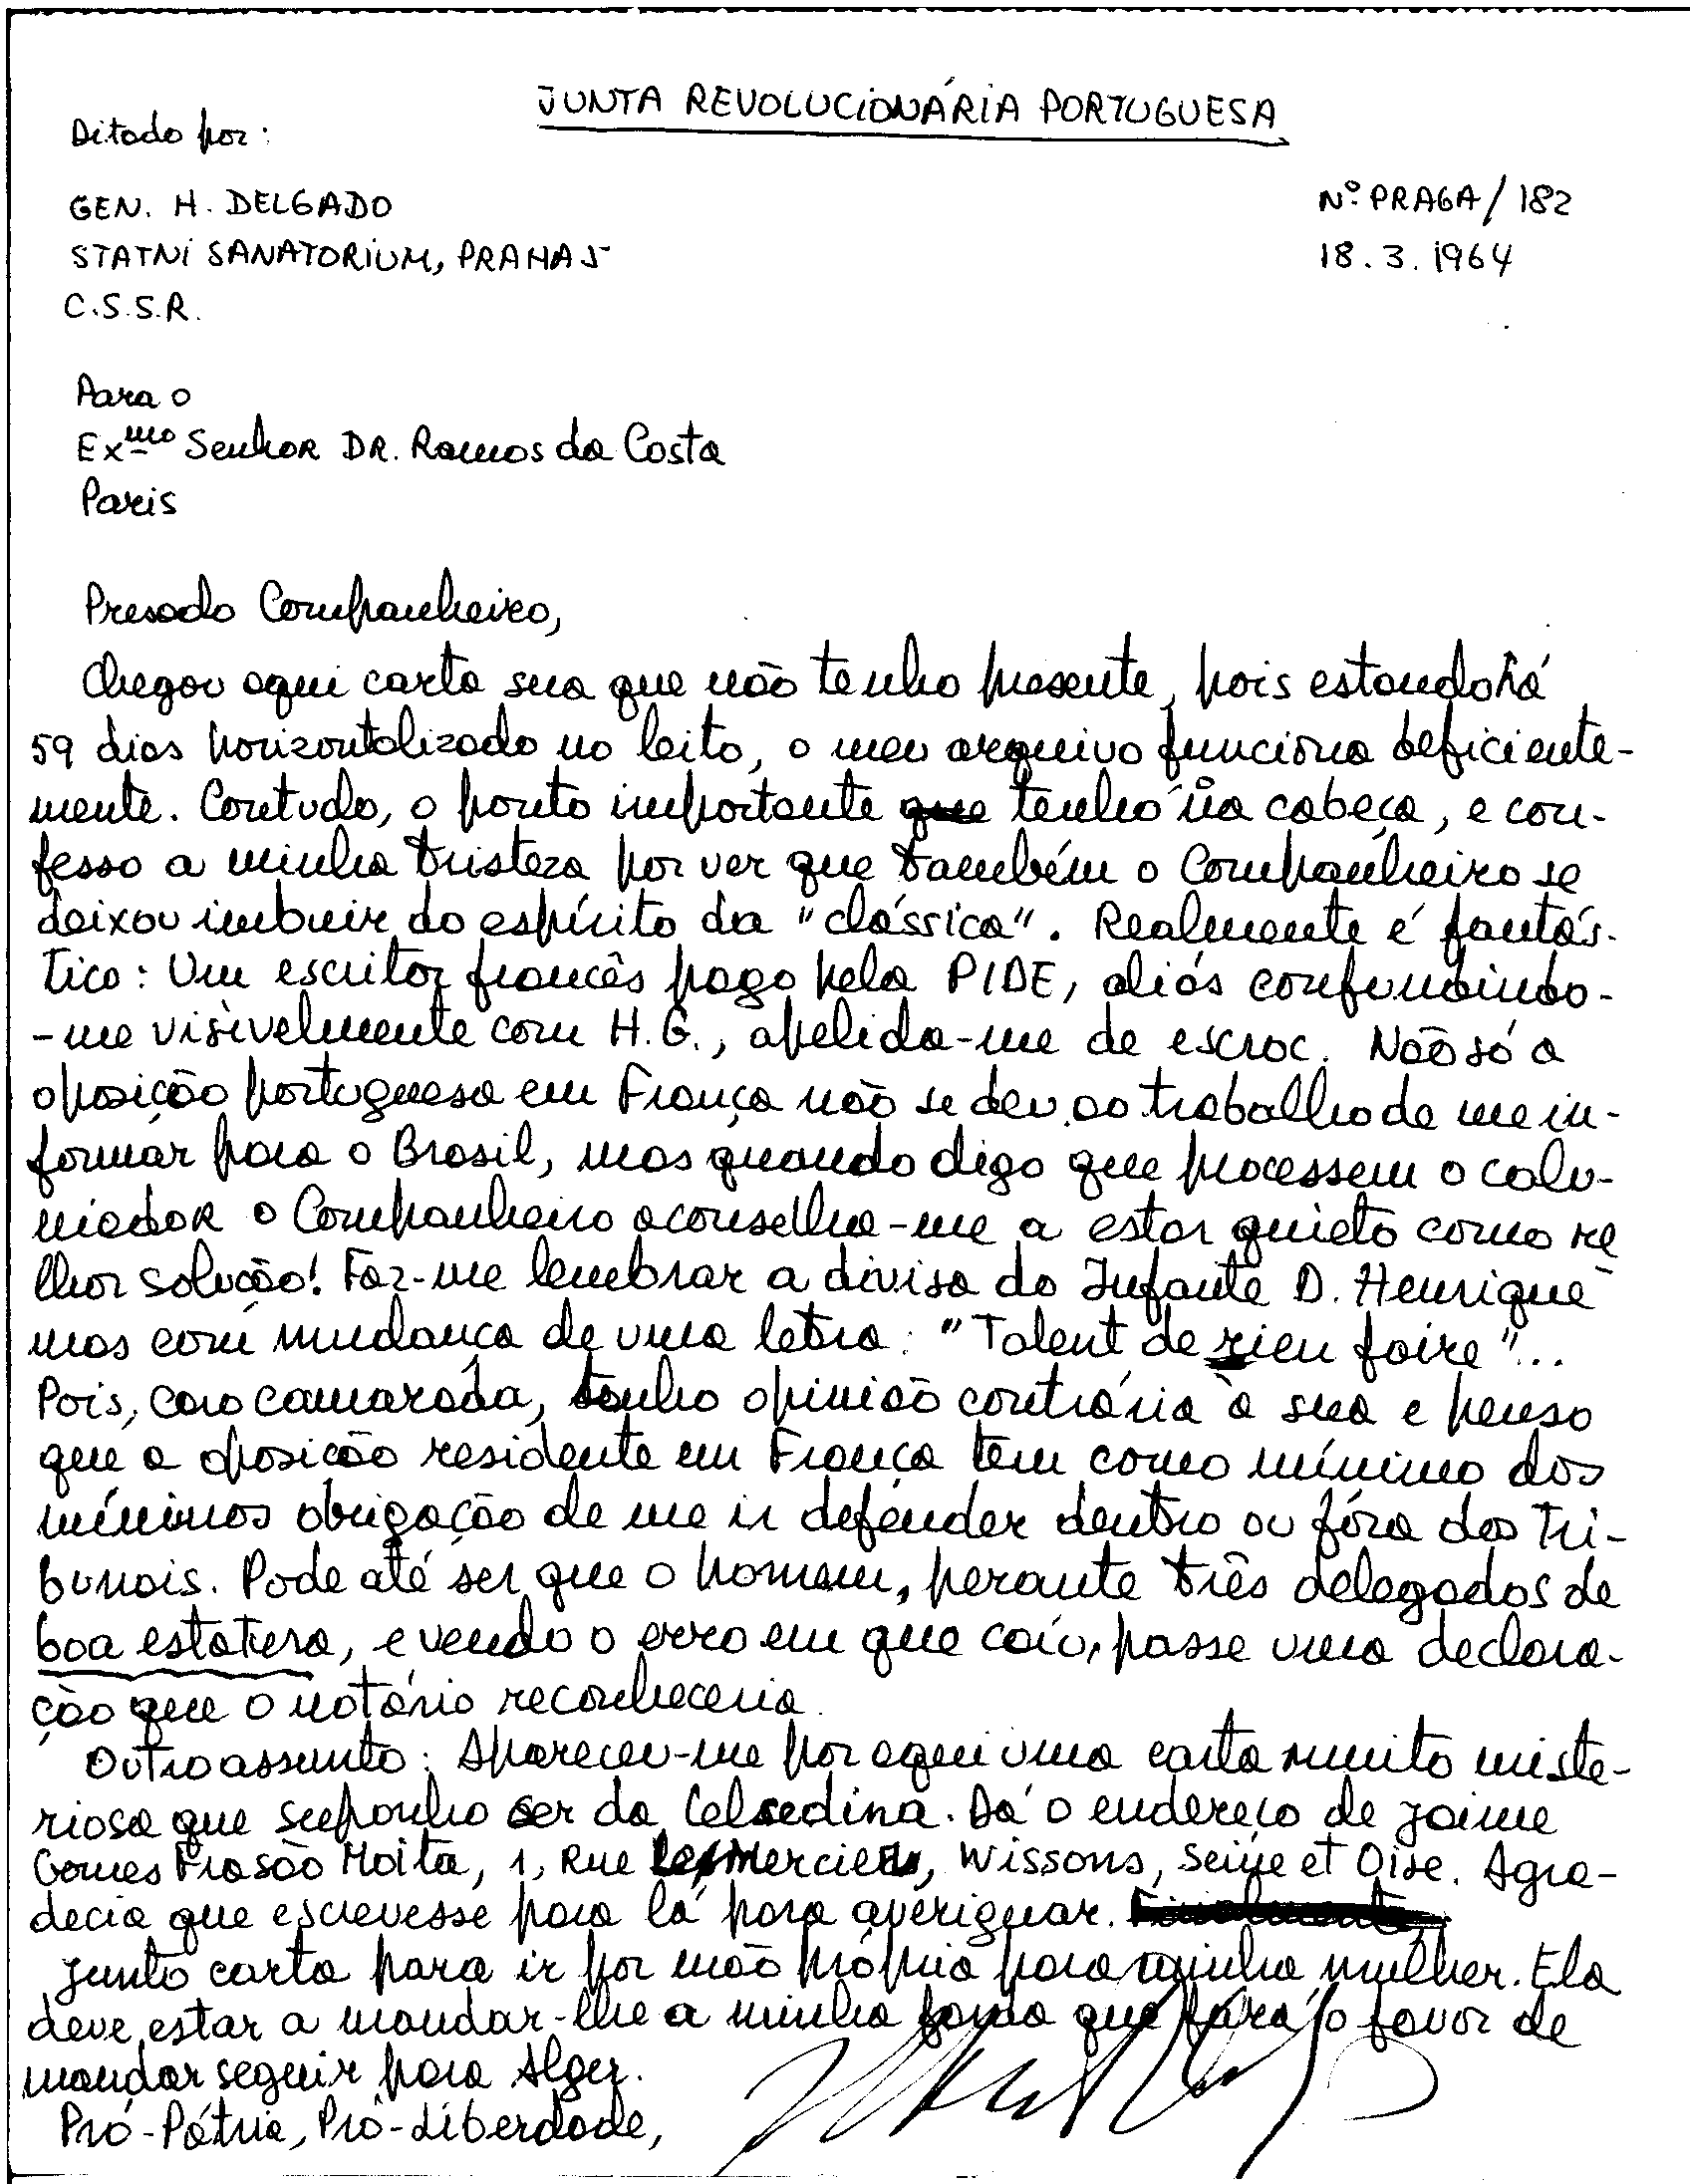 JUNTA REVOLUCIONÁRIA PORTUGUESA
Ditado por:
GEN. H. DELGADO
Nº PRAGA/182
STATNI SANATORIUM, PRAHA 5
18.3.1964
C.S.S.R.
Para o
Exmo Senhor DR. Ramos da Costa
Paris
Presado Companheiro,
Chegou aqui carta sua que não tenho presente, pois estando há
59 dias horizontalizado no leito, o meu arquivo funciona deficiente-
mente. Contudo, o ponto importante que tenho na cabeça, e con-
fesso a minha tristeza por ver que também o Companheiro se
deixou imbuir do espírito da "clássica". Realmente é fantás-
tico: Um escritor francês pago pela PIDE, aliás confundindo-
-me visivelmente com H.G., apelida-me de escroc. Não só a
oposição portuguesa em França não se deu ao trabalho de me in-
formar para o Brasil, mas quando digo que processem o calu-
niador o Companheiro aconselha-me a estar quieto como me
lhor solução! Faz-me lembrar a divisa do Infante D. Henrique
mas com mudança de uma letra: "Talent de rien faire"...
Pois, caro camarada, tenho opinião contrária à sua e penso
que a oposição residente em França tem como mínimo dos
mínimos obrigação de me ir defender dentro ou fóra dos tri-
bunais. Pode até ser que o homem, perante três delegados de
boa estatura, e vendo o erro em que caíu, passe uma declara-
ção que o notário reconheceria.
Outro assunto: Apareceu-me por aqui uma carta muito miste-
riosa que suponho ser da Celsedina. Dá o endereço de Jaime
Gomes Frasão Moita, 1, Rue Mercier, Wissons, Seine et Oise. Agra-
decia que escrevesse para lá para averiguar. Finalmente,
Junto carta para ir por mão própria para minha mulher. Ela
deve estar a mandar-lhe a minha farda que fará o favor de
mandar seguir para Alger.
Pró-Pátria, Pró-Liberdade,